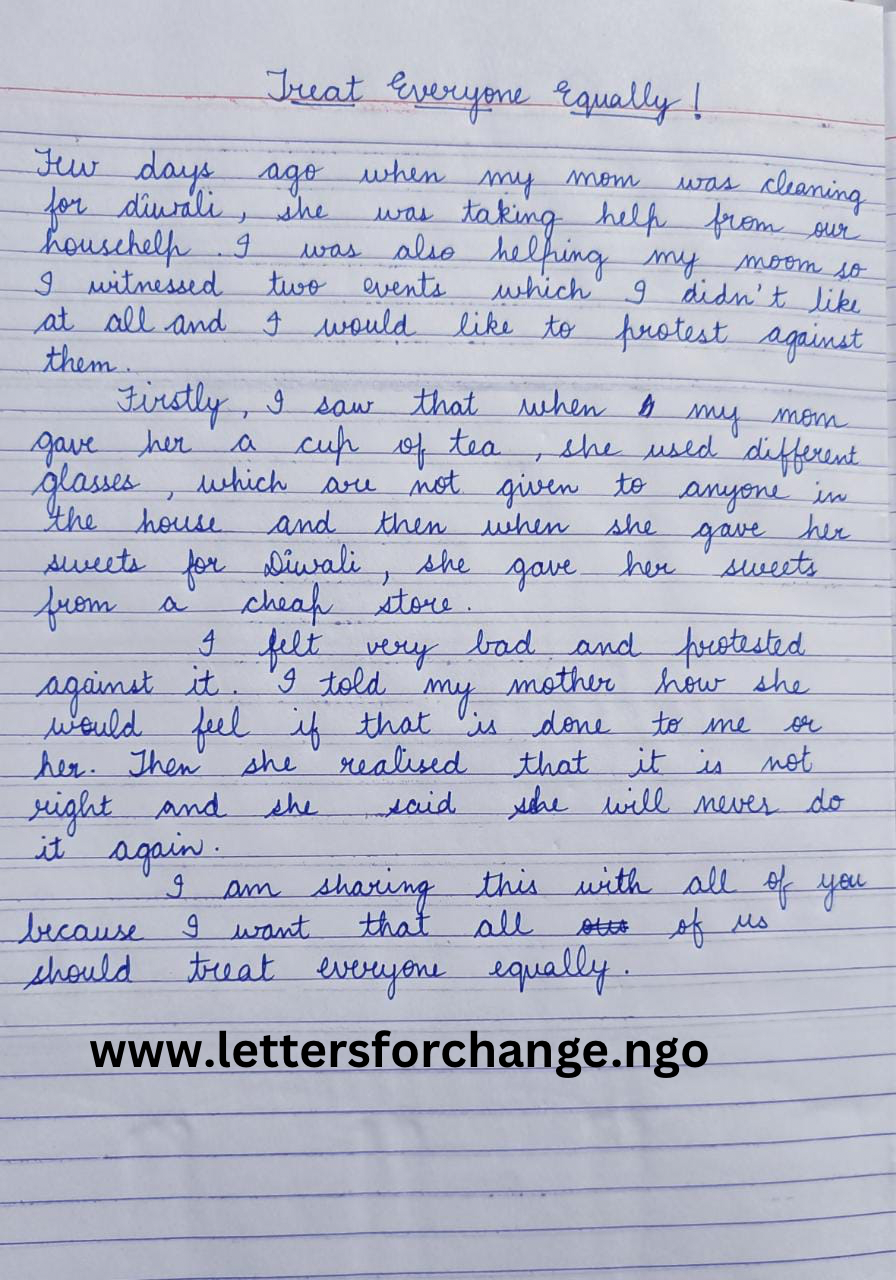 Treat Everyone Equally!
Few days ago when my mom was cleaning
for diwali, she was taking help from our
househelp. I was also helping my moom so
I witnessed two events which I didn't like
at all and I would like to protest against
them.
Firstly, I saw that when my mom
gave her a cup of tea, she used different
glasses, which are not given to anyone in
the house and then when she gave her
sweets for Diwali, she gave her sweets
from a cheap store.
I felt very bad and protested
against it. I told my mother how she
would feel if that is done to me or
her. Then she realised that it is not
right and she said she will never do
it again.
I am sharing this with all of you
because I want that all of us
should treat everyone equally.
www.lettersforchange.ngo